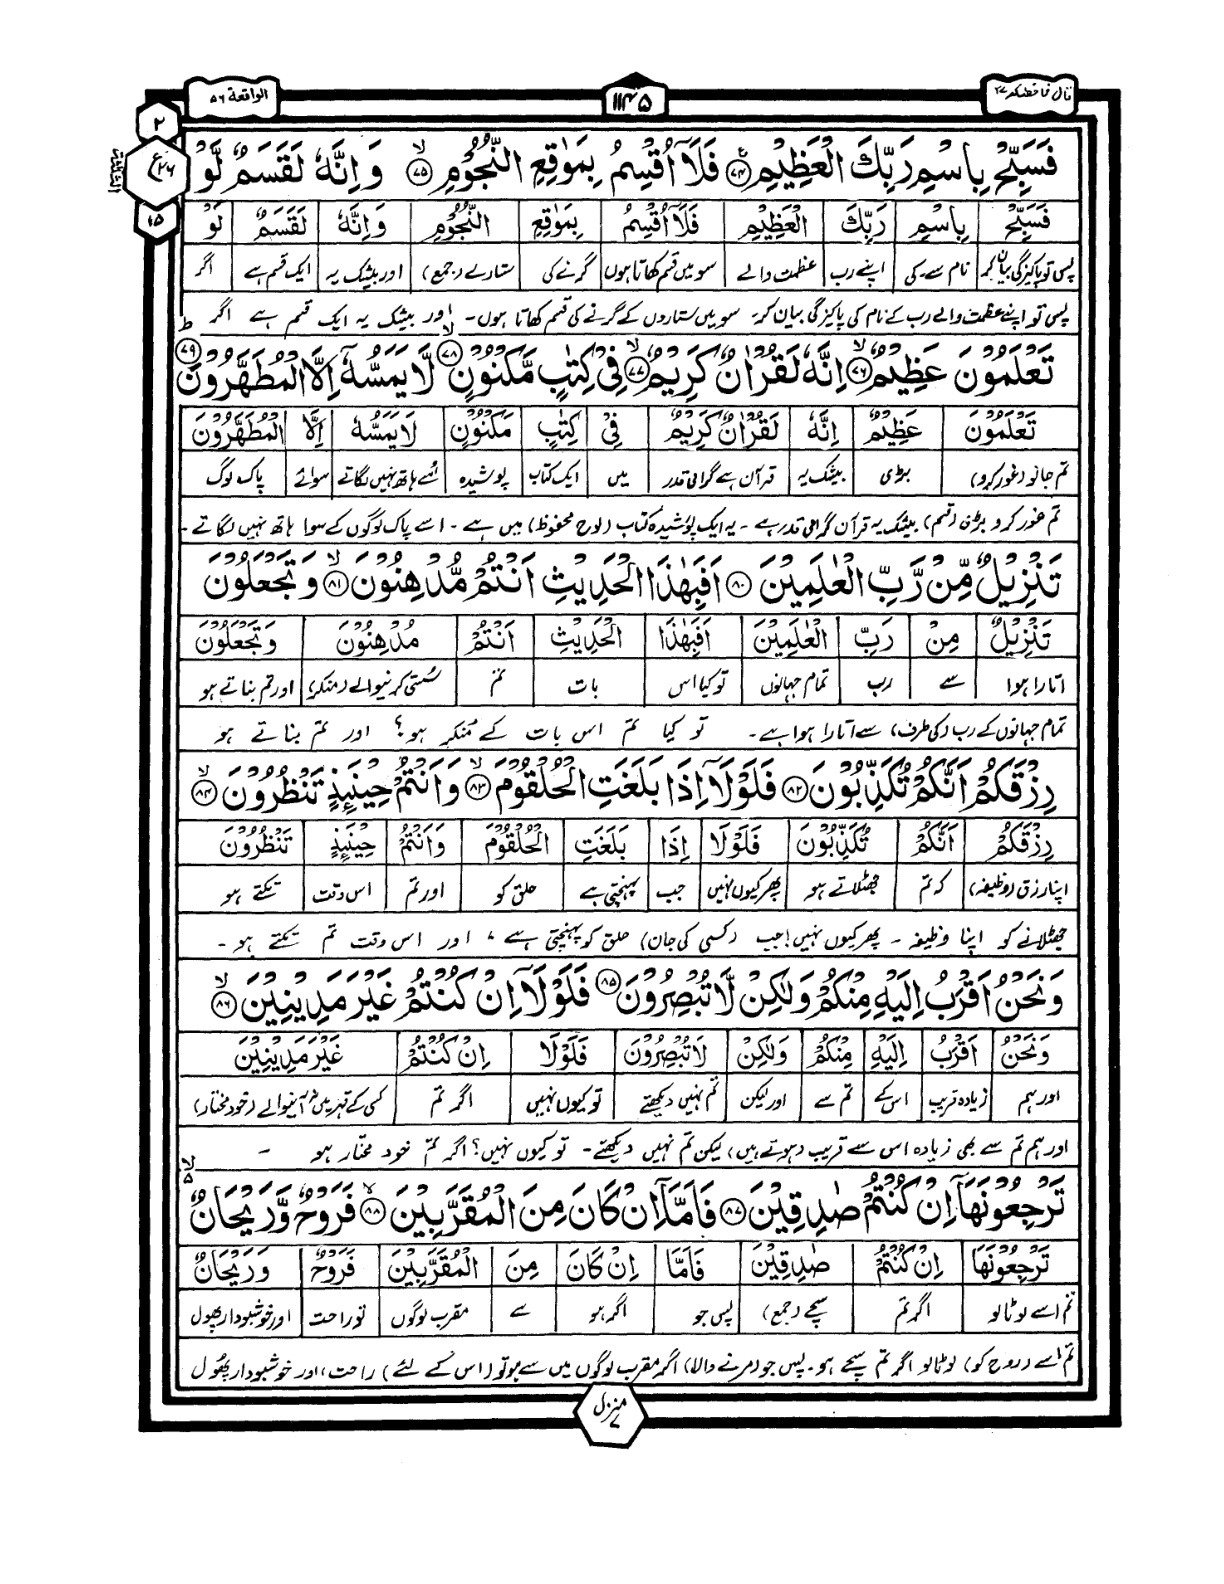 قال فما خطبكم ۲۷
۱۱۴۵
الواقعة ۵۶
۲
ع ۲۶
۱۵
فَسَبِّحْ بِاسْمِ رَبِّكَ الْعَظِيْمِ ۷۴ فَلَآ اُقْسِمُ بِمَوٰقِعِ النُّجُوْمِ ۷۵ وَ اِنَّهٗ لَقَسَمٌ لَّوْ
فَسَبِّحْ بِاسْمِ رَبِّكَ الْعَظِيْمِ فَلَآ اُقْسِمُ بِمَوٰقِعِ النُّجُوْمِ وَاِنَّهٗ لَقَسَمٌ لَوْ
پس تو پاکیزگی بیان کر نام سے۔ کی اپنے رب عظمت والے سو میں قسم کھاتا ہوں گرنے کی ستارے (جمع) اور بیشک یہ ایک قسم ہے اگر
پس تو اپنے عظمت والے رب کے نام کی پاکیزگی بیان کر۔ سو میں ستاروں کے گرنے کی قسم کھاتا ہوں۔ اور بیشک یہ ایک قسم ہے اگر
تَعْلَمُوْنَ عَظِيْمٌ ۷۶ اِنَّهٗ لَقُرْاٰنٌ كَرِيْمٌ ۷۷ فِيْ كِتٰبٍ مَّكْنُوْنٍ ۷۸ لَّا يَمَسُّهٗٓ اِلَّا الْمُطَهَّرُوْنَ ۷۹
تَعْلَمُوْنَ عَظِيْمٌ اِنَّهٗ لَقُرْاٰنٌ كَرِيْمٌ فِيْ كِتٰبٍ مَّكْنُوْنٍ لَا يَمَسُّهٗ اِلَّا الْمُطَهَّرُوْنَ
تم جانو (غور کرو) بڑی بیشک یہ قرآن ہے گرامی قدر میں ایک کتاب پوشیدہ اسے ہاتھ نہیں لگاتے سوائے پاک لوگ
تم غور کرو بڑی (قسم) بیشک یہ قرآن گرامی قدر ہے۔ یہ ایک پوشیدہ کتاب (لوح محفوظ) میں ہے۔ اسے پاک لوگوں کے سوا ہاتھ نہیں لگاتے۔
تَنْزِيْلٌ مِّنْ رَّبِّ الْعٰلَمِيْنَ ۸۰ اَفَبِهٰذَا الْحَدِيْثِ اَنْتُمْ مُّدْهِنُوْنَ ۸۱ وَ تَجْعَلُوْنَ
تَنْزِيْلٌ مِنْ رَبِّ الْعٰلَمِيْنَ اَفَبِهٰذَا الْحَدِيْثِ اَنْتُمْ مُدْهِنُوْنَ وَتَجْعَلُوْنَ
اتارا ہوا سے رب تمام جہانوں تو کیا اس بات تم سستی کرنیوالے (منکر) اور تم بناتے ہو
تمام جہانوں کے رب (کی طرف) سے اتارا ہوا ہے۔ تو کیا تم اس بات کے منکر ہو؟ اور تم بناتے ہو
رِزْقَكُمْ اَنَّكُمْ تُكَذِّبُوْنَ ۸۲ فَلَوْلَآ اِذَا بَلَغَتِ الْحُلْقُوْمَ ۸۳ وَ اَنْتُمْ حِيْنَىِٕذٍ تَنْظُرُوْنَ ۸۴
رِزْقَكُمْ اَنَّكُمْ تُكَذِّبُوْنَ فَلَوْلَا اِذَا بَلَغَتِ الْحُلْقُوْمَ وَاَنْتُمْ حِيْنَىِٕذٍ تَنْظُرُوْنَ
اپنا رزق (وظیفہ) کہ تم جھٹلاتے ہو پھر کیوں نہیں جب پہنچتی ہے حلق کو اور تم اس وقت تکتے ہو
جھٹلانے کو اپنا وظیفہ۔ پھر کیوں نہیں! جب (کسی کی جان) حلق کو پہنچتی ہے، اور اس وقت تم تکتے ہو۔
وَ نَحْنُ اَقْرَبُ اِلَيْهِ مِنْكُمْ وَ لٰكِنْ لَّا تُبْصِرُوْنَ ۸۵ فَلَوْلَآ اِنْ كُنْتُمْ غَيْرَ مَدِيْنِيْنَ ۸۶
وَنَحْنُ اَقْرَبُ اِلَيْهِ مِنْكُمْ وَلٰكِنْ لَا تُبْصِرُوْنَ فَلَوْلَا اِنْ كُنْتُمْ غَيْرَ مَدِيْنِيْنَ
اور ہم زیادہ قریب اس کے تم سے اور لیکن تم نہیں دیکھتے تو کیوں نہیں اگر تم کسی کے قہر میں نہ آنیوالے (خود مختار)
اور ہم تم سے بھی زیادہ اس سے قریب (ہوتے ہیں) لیکن تم نہیں دیکھتے۔ تو کیوں نہیں؟ اگر تم خود مختار ہو۔
تَرْجِعُوْنَهَآ اِنْ كُنْتُمْ صٰدِقِيْنَ ۸۷ فَاَمَّآ اِنْ كَانَ مِنَ الْمُقَرَّبِيْنَ ۸۸ فَرَوْحٌ وَّ رَيْحَانٌ
تَرْجِعُوْنَهَا اِنْ كُنْتُمْ صٰدِقِيْنَ فَاَمَّا اِنْ كَانَ مِنَ الْمُقَرَّبِيْنَ فَرَوْحٌ وَرَيْحَانٌ
تم اسے لوٹا لو اگر تم سچے (جمع) پس جو اگر ہو سے مقرب لوگوں تو راحت اور خوشبودار پھول
تم اسے (روح کو) لوٹا لو اگر تم سچے ہو۔ پس جو (مرنے والا) اگر مقرب لوگوں میں سے ہو تو (اس کے لئے) راحت، اور خوشبودار پھول
منزل ۷